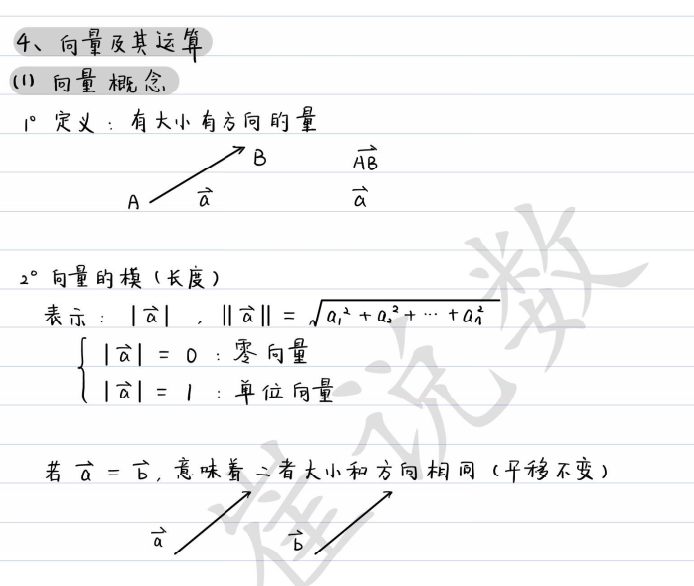 4、向量及其运算
(1) 向量概念
1° 定义：有大小有方向的量
B
$\overrightarrow{AB}$
A
$\vec{a}$
$\vec{a}$
2° 向量的模（长度）
表示：$|\vec{a}|$ ，$\|\vec{a}\| = \sqrt{a_1^2 + a_2^2 + \cdots + a_n^2}$
$|\vec{a}| = 0$ ：零向量
$|\vec{a}| = 1$ ：单位向量
若 $\vec{a} = \vec{b}$，意味着二者大小和方向相同（平移不变）
$\vec{a}$
$\vec{b}$
崔说数